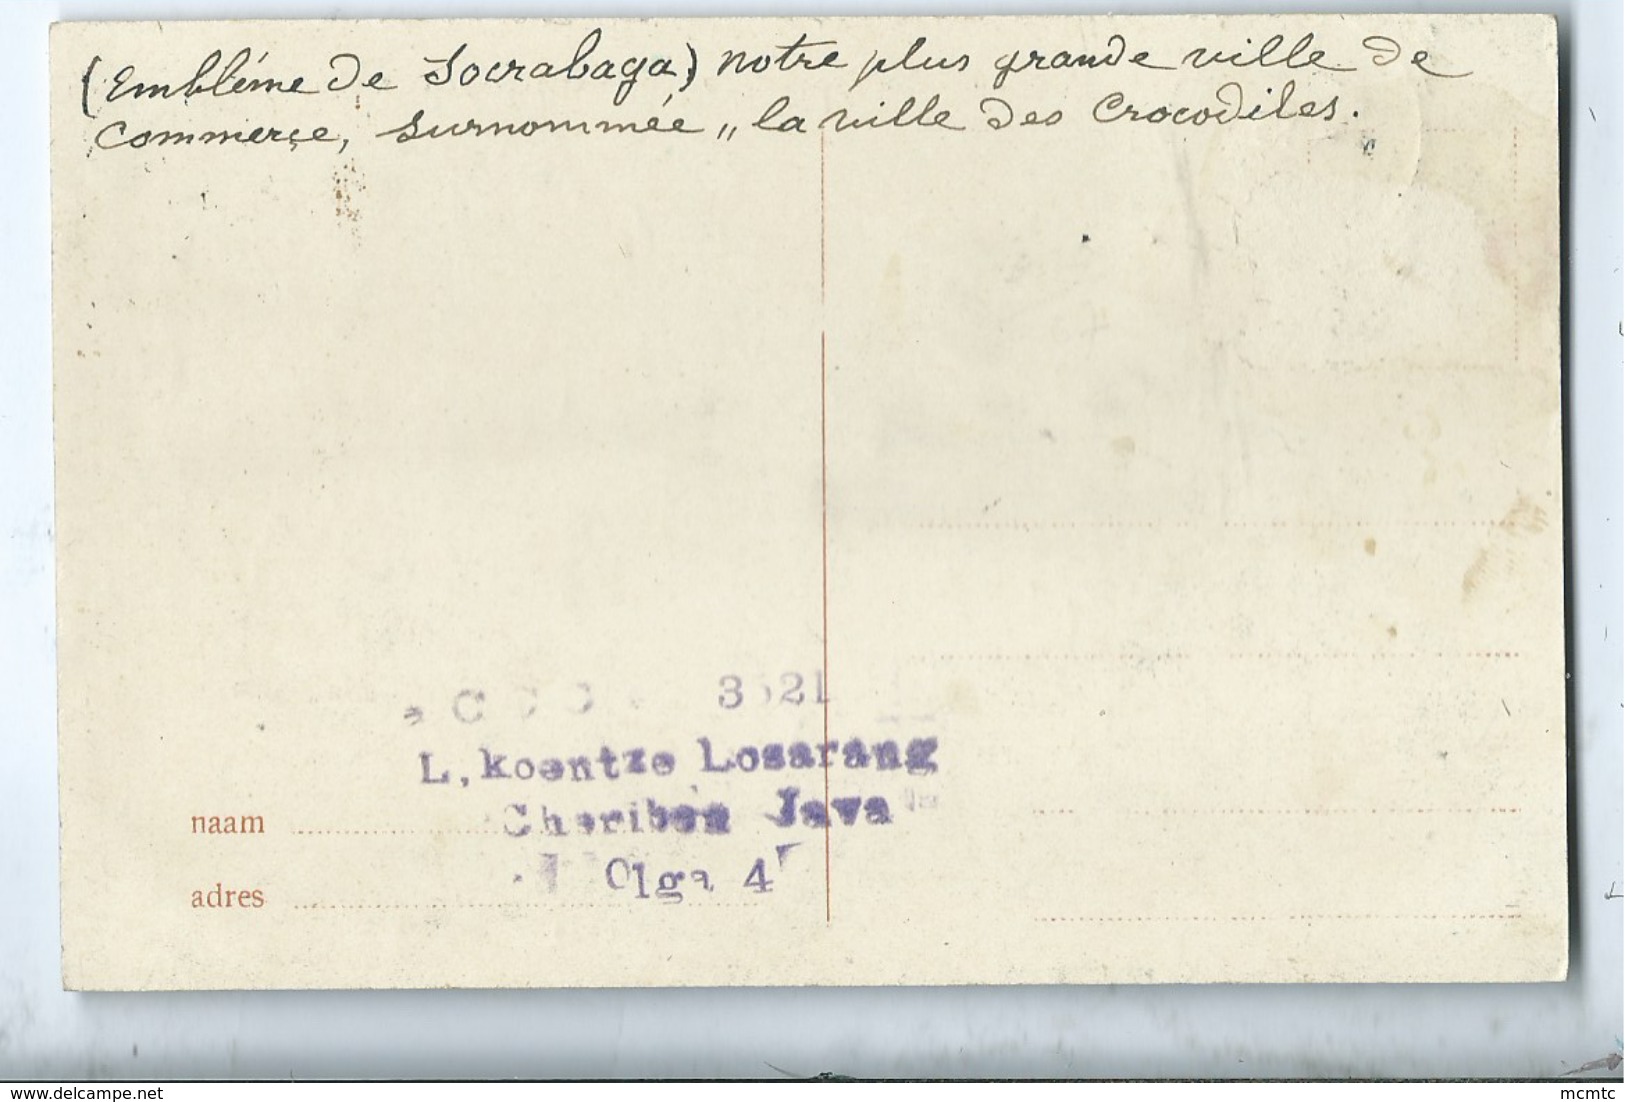 (Emblême de Soerabaga) notre plus grande ville de
commerçe, surnommée „ la ville des Crocodiles.
L, Koentze Losarang
Cheribon Java
Olga 4
naam
adres
delcampe.net
mcmtc